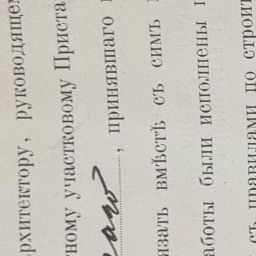 архитектору, руководящем
тному участковому Приста
, принявшаго
язать вмѣстѣ съ симъ
аботы были исполнены
съ правилами по строит